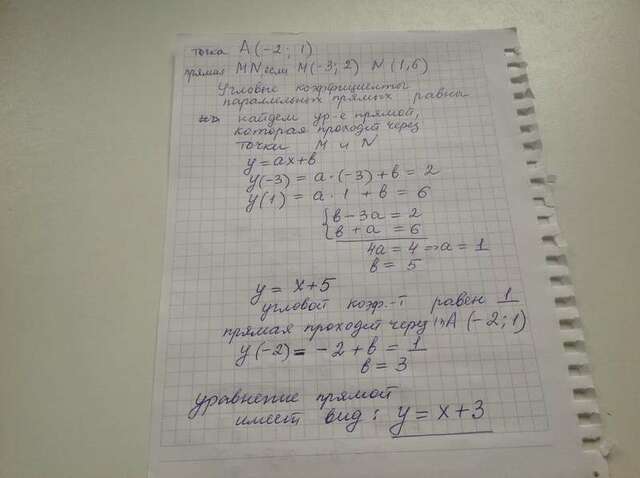 точка A(-2; 1)
прямая MN если M(-3; 2) N(1, 6)
Угловые коэффициенты
параллельных прямых равны
найдем ур-е прямой,
которая проходит через
точки M и N
y=ax+b
y(-3) = a·(-3)+b = 2
y(1) = a·1+b = 6
{b-3a = 2
b+a = 6
4a = 4 => a = 1
b = 5
y = x+5
угловой коэф.-т равен 1
прямая проходит через A (-2; 1)
y(-2) = -2+b = 1
b = 3
уравнение прямой
имеет вид: y = x+3